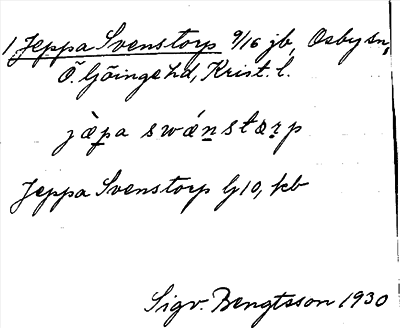 1 Jeppa Svenstorp 9/16 jb, Osby sn,
Ö. Göinge hd, Krist. l.
jæ̀pa swǽnstærp
Jeppa Svenstorp lg 10, kb
Sigv. Bengtsson 1930